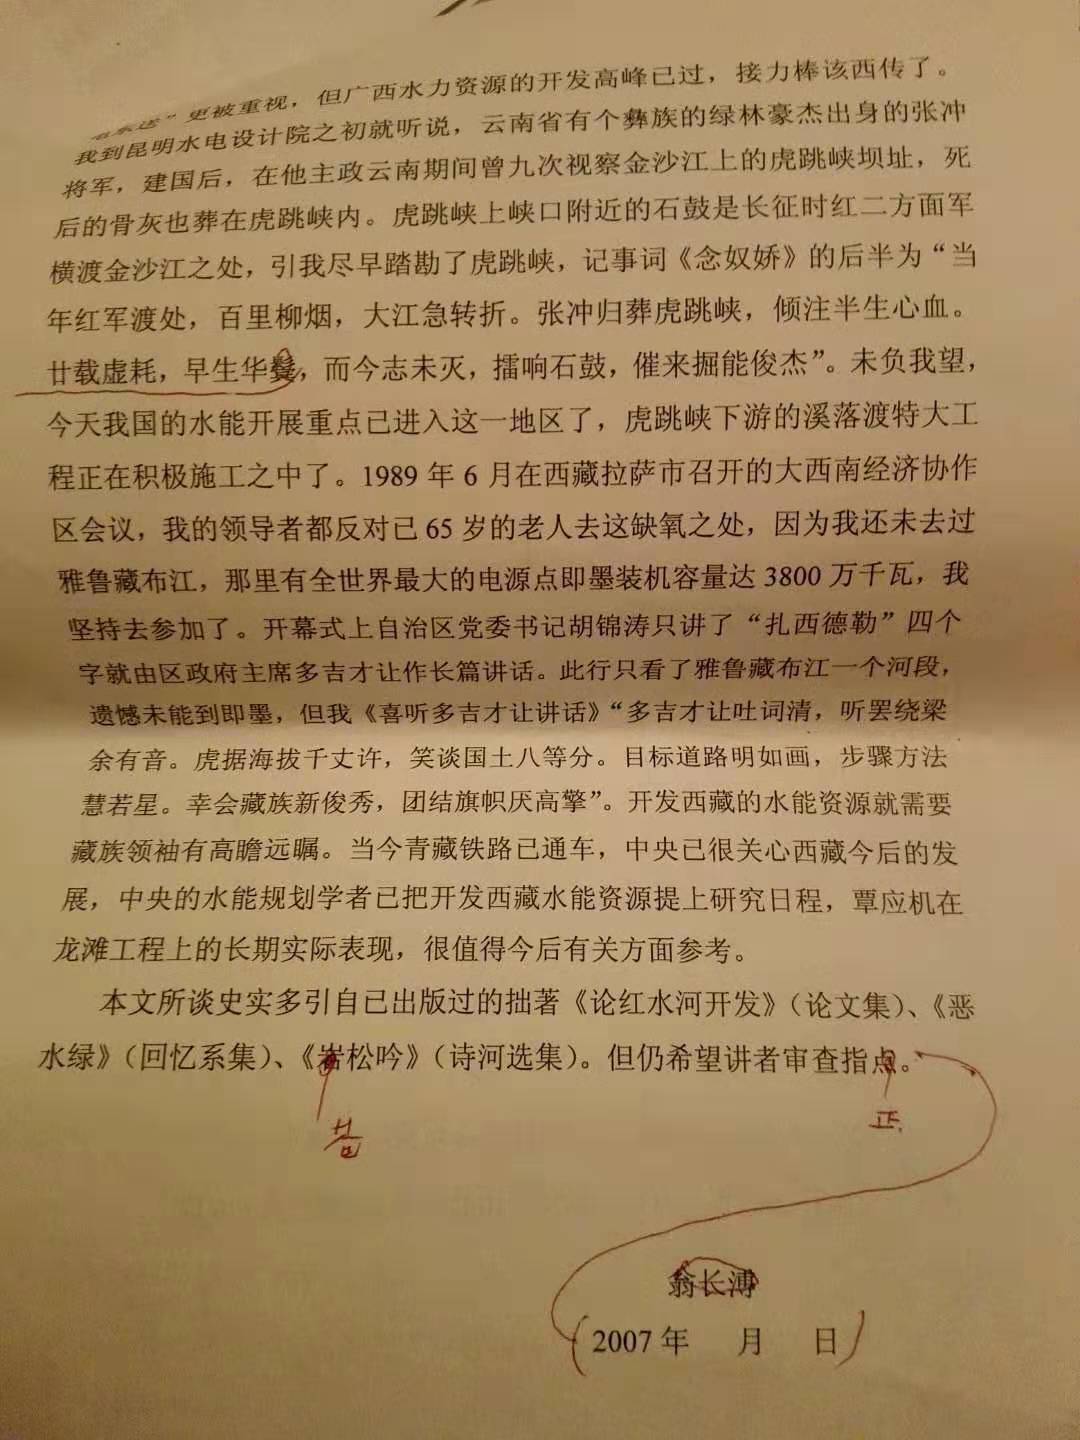 电东送”更被重视，但广西水力资源的开发高峰已过，接力棒该西传了。
我到昆明水电设计院之初就听说，云南省有个彝族的绿林豪杰出身的张冲
将军，建国后，在他主政云南期间曾九次视察金沙江上的虎跳峡坝址，死
后的骨灰也葬在虎跳峡内。虎跳峡上峡口附近的石鼓是长征时红二方面军
横渡金沙江之处，引我尽早踏勘了虎跳峡，记事词《念奴娇》的后半为“当
年红军渡处，百里柳烟，大江急转折。张冲归葬虎跳峡，倾注半生心血。
廿载虚耗，早生华鬓，而今志未灭，擂响石鼓，催来掘能俊杰”。未负我望，
今天我国的水能开展重点已进入这一地区了，虎跳峡下游的溪落渡特大工
程正在积极施工之中了。1989 年 6 月在西藏拉萨市召开的大西南经济协作
区会议，我的领导者都反对已 65 岁的老人去这缺氧之处，因为我还未去过
雅鲁藏布江，那里有全世界最大的电源点即墨装机容量达 3800 万千瓦，我
坚持去参加了。开幕式上自治区党委书记胡锦涛只讲了“扎西德勒”四个
字就由区政府主席多吉才让作长篇讲话。此行只看了雅鲁藏布江一个河段，
遗憾未能到即墨，但我《喜听多吉才让讲话》“多吉才让吐词清，听罢绕梁
余有音。虎据海拔千丈许，笑谈国土八等分。目标道路明如画，步骤方法
慧若星。幸会藏族新俊秀，团结旗帜厌高擎”。开发西藏的水能资源就需要
藏族领袖有高瞻远瞩。当今青藏铁路已通车，中央已很关心西藏今后的发
展，中央的水能规划学者已把开发西藏水能资源提上研究日程，覃应机在
龙滩工程上的长期实际表现，很值得今后有关方面参考。
本文所谈史实多引自已出版过的拙著《论红水河开发》（论文集）、《恶
水绿》（回忆系集）、《岩松吟》（诗河选集）。但仍希望讲者审查指点。
正.
翁长溥
（2007 年 月 日）